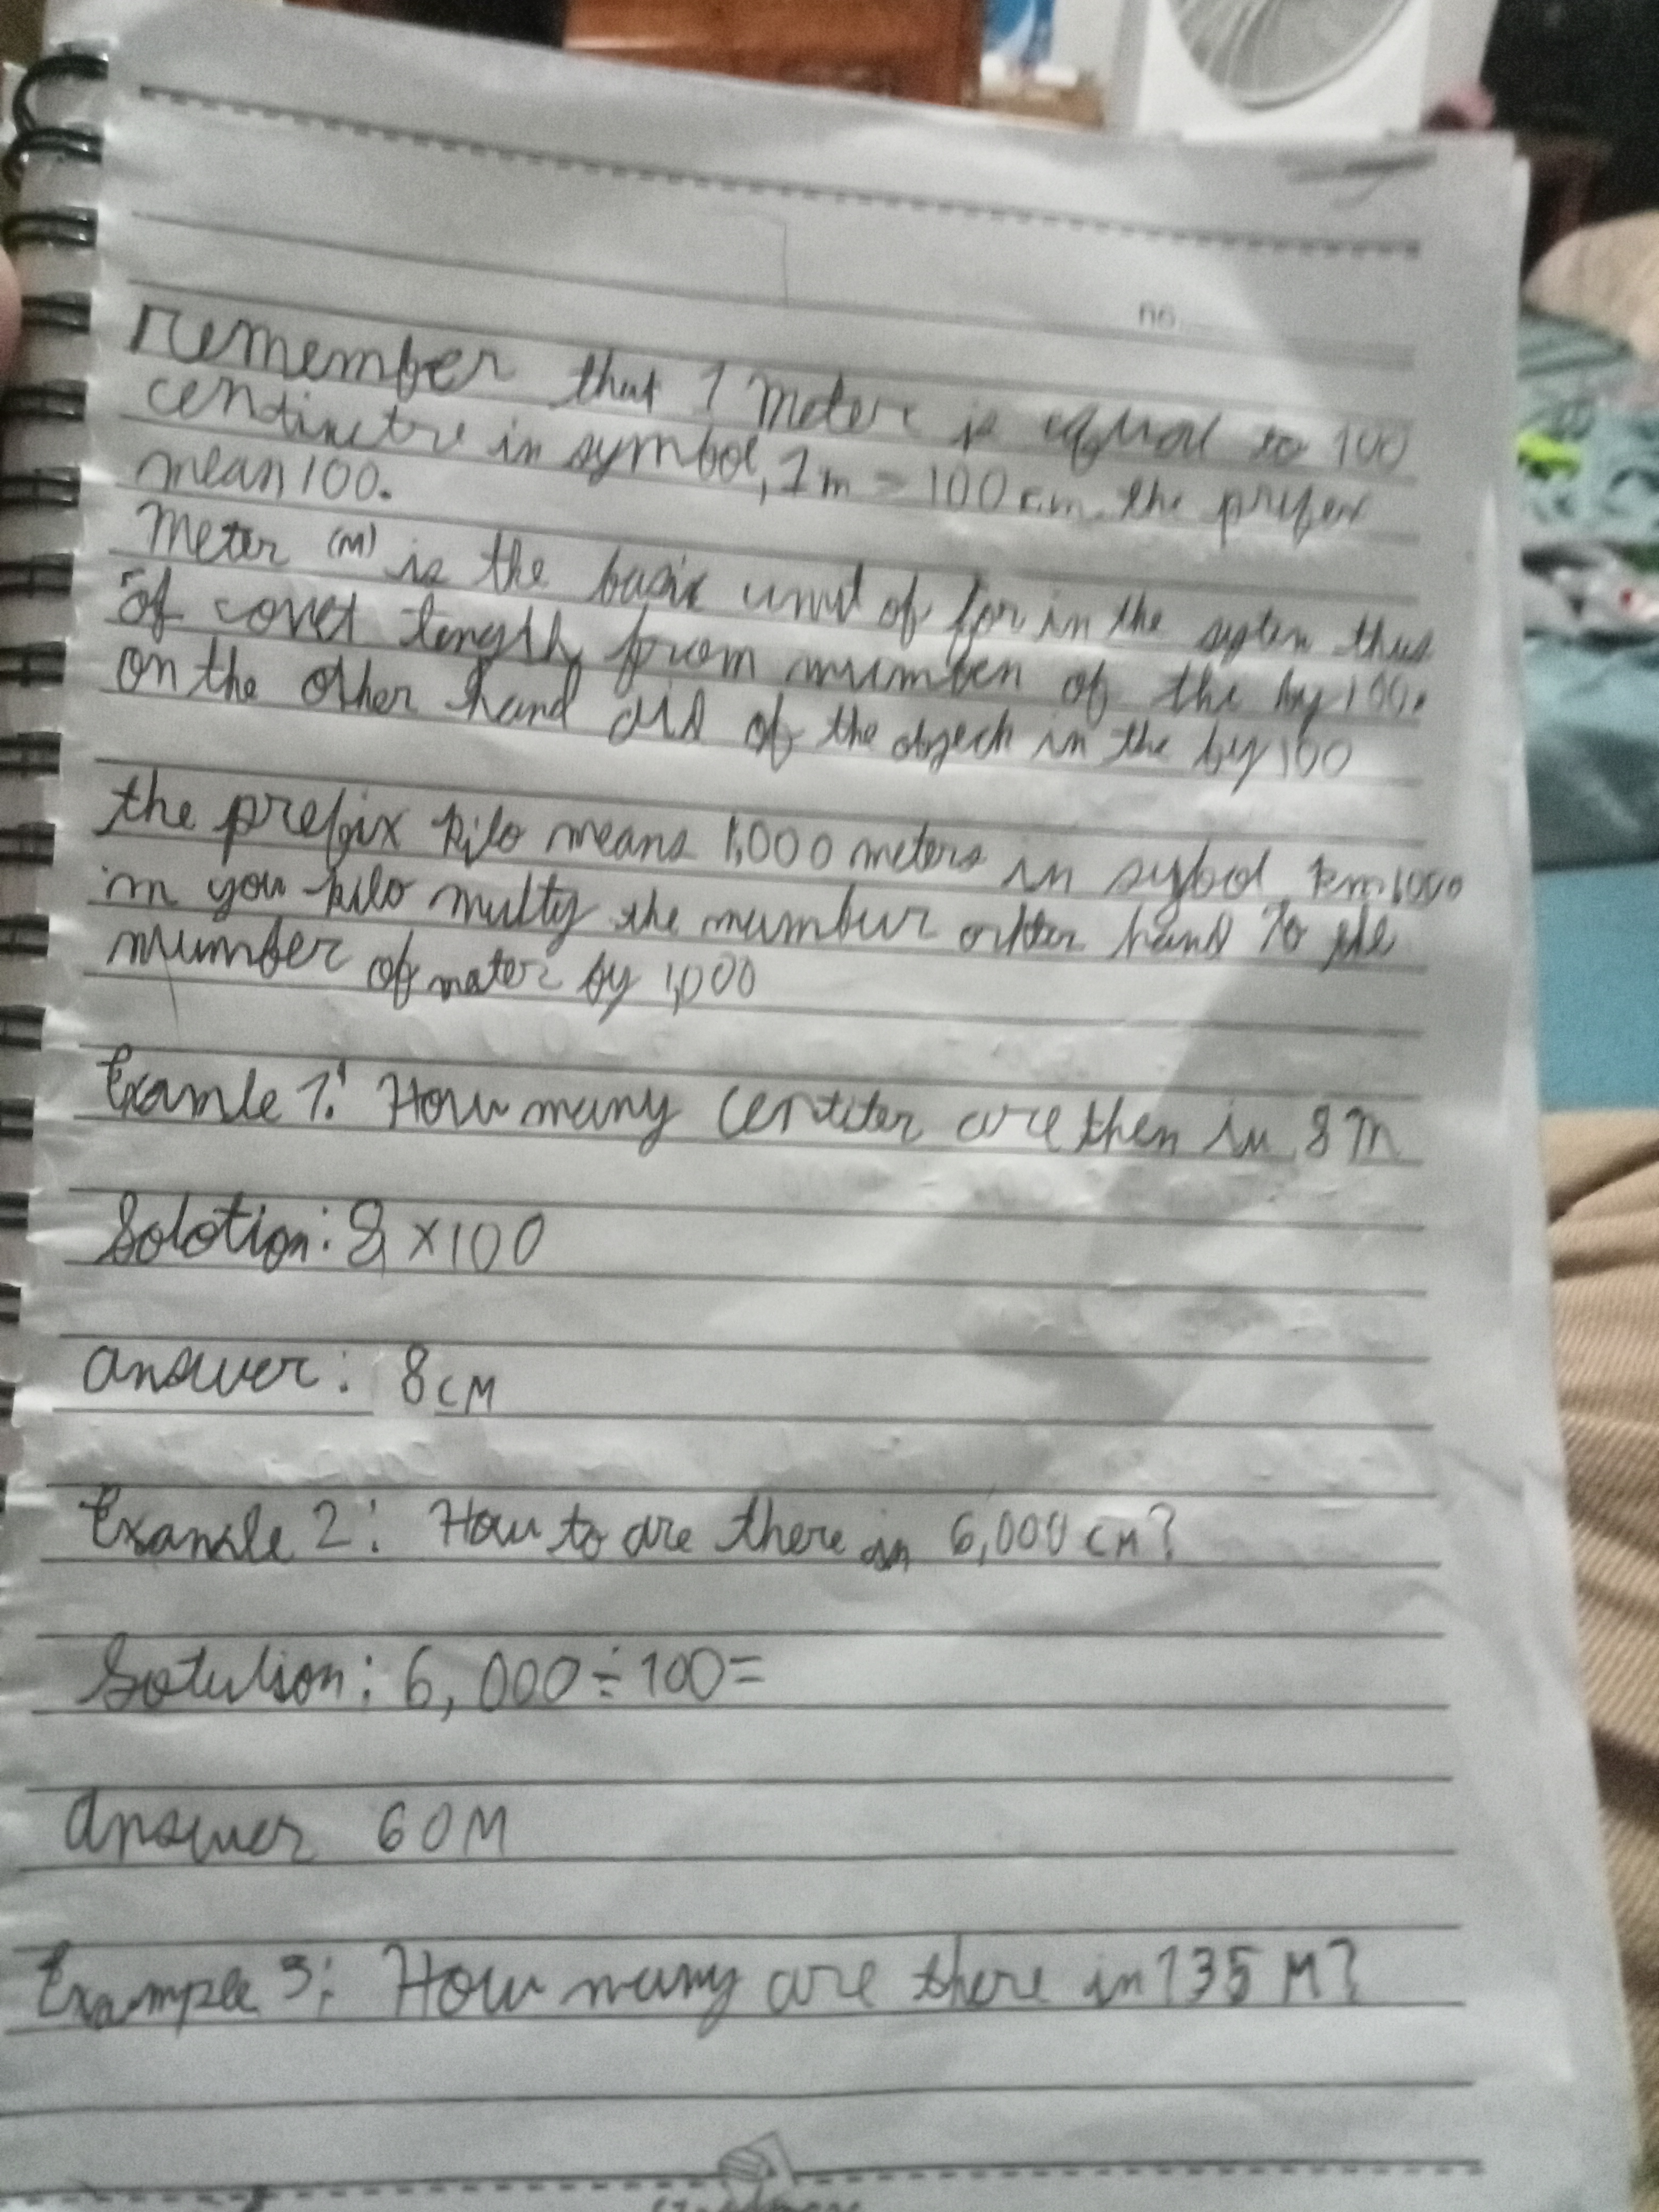 no.
remember that 1 meter is equal to 100
centimetre in symbol, 1m = 100cm. the prifex
mean 100.
meter (M) is the basic unit of for in the sytem thus
of covet length from mumben of the by 100.
on the other hand of the object in the by 100
the prefix kilo means 1,000 meters in sybol km 1000
in you kilo multy the mumbur other hand To the
number of mater by 1,000
Examle 1: How many centiter are then in 8 m
Solotion: 8 x100
answer: 8cM
Examle 2: How to are there in 6,000 cM?
Solution: 6,000÷100=
answer 60M
Example 3: How many are there in 135 M?